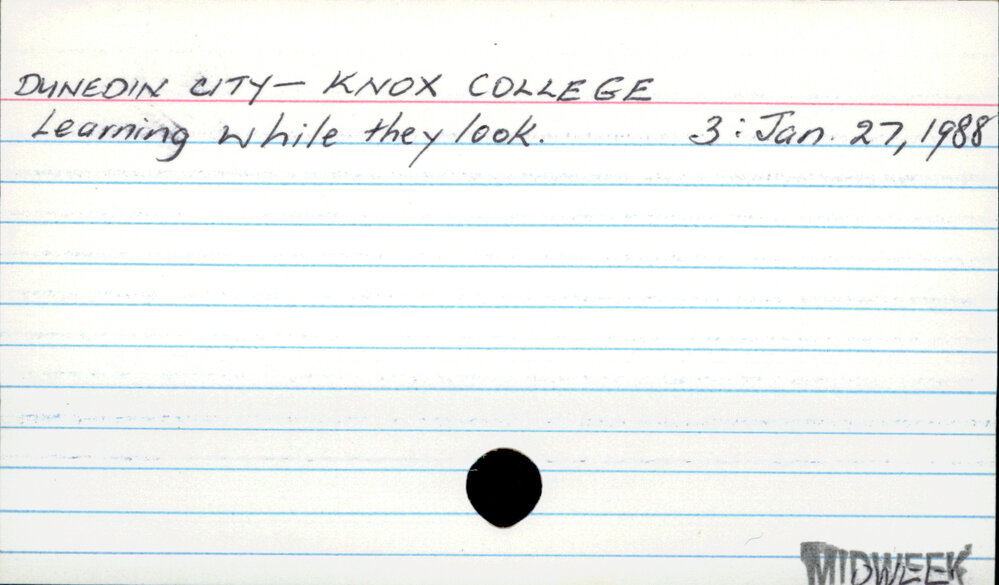 DUNEDIN CITY — KNOX COLLEGE
Learning while they look. 3 : Jan. 27, 1988
MIDWEEK